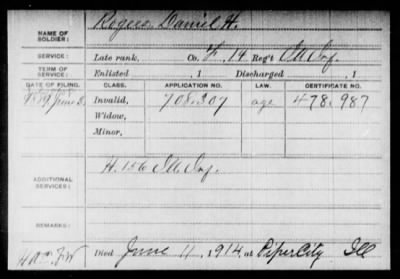 Rogers Daniel H.
NAME OF SOLDIER:
SERVICE: Late rank, Co. F, 14 Reg't Ill Inf.
TERM OF SERVICE: Enlisted , 1 Discharged , 1
DATE OF FILING. CLASS. APPLICATION NO. LAW. CERTIFICATE NO.
June Invalid, 708.307 age 478.987
Widow,
Minor,
H. 156 Ill Inf.
ADDITIONAL SERVICES:
REMARKS:
Died June 11, 1914, at Piper City Ill